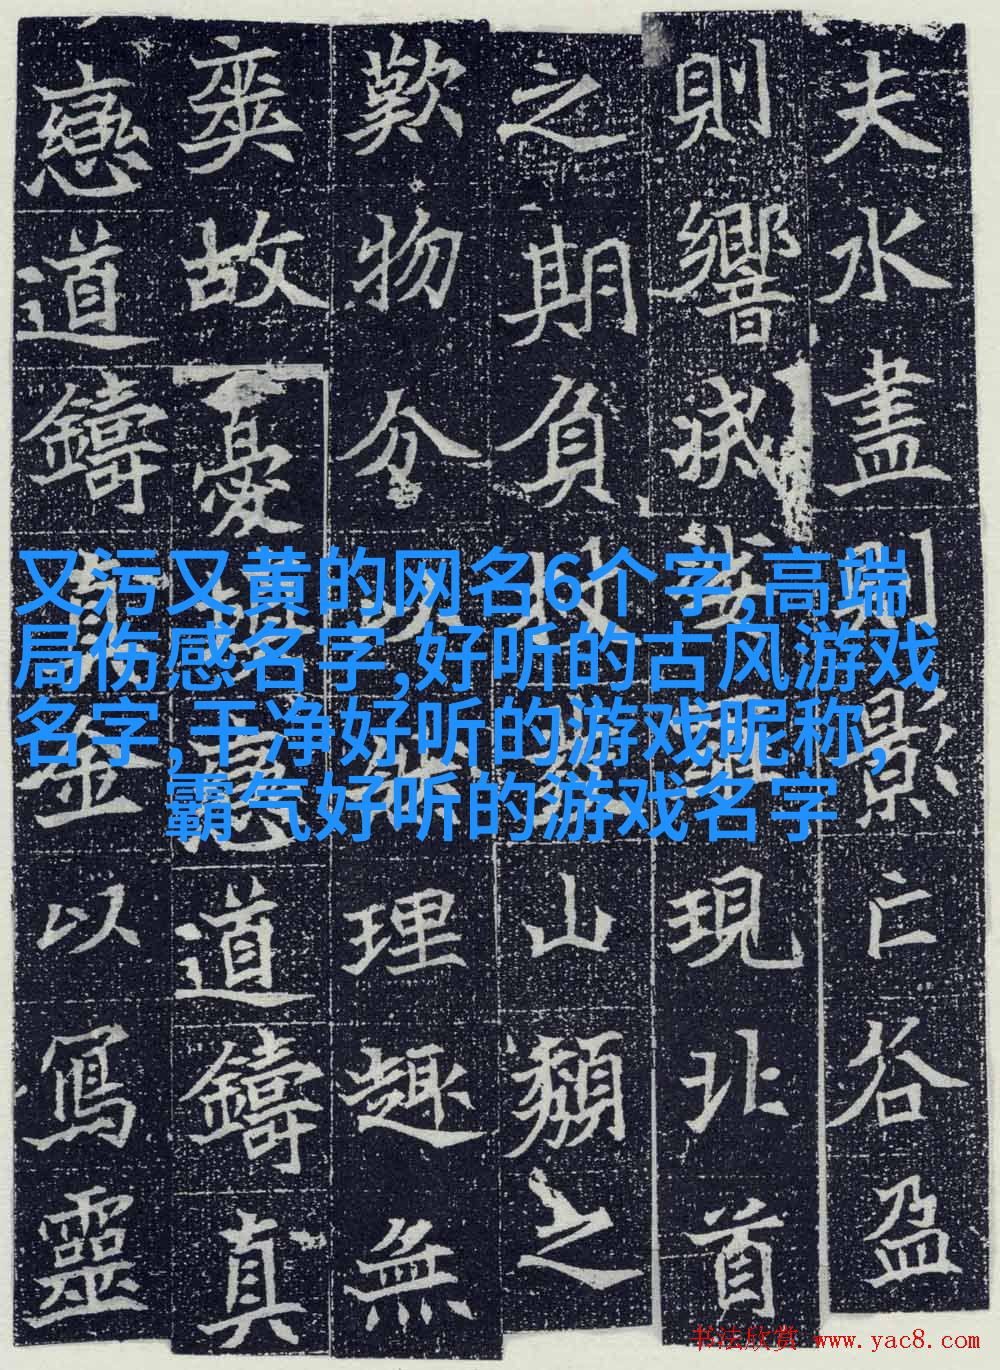 又污又黄的网名6个字,高端
局伤感名字,好听的古风游戏
名字,干净好听的游戏昵称,
霸气好听的游戏名字
夫水盡則影亡谷盈
則響滅現北首
之期負山頹之
歎物分理趣無
爽故憂道鑄真
戀道鑄金以寫靈
书法欣赏 www.yac8.com